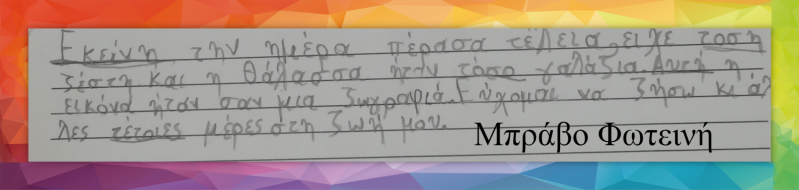 Εκείνη την ημέρα πέρασα τέλεια, είχε τοση
ζέστη και η θάλασσα ήταν τόσο γαλάζια. Αυτή η
εικόνα ήταν σαν μια ζωγραφιά. Εύχομαι να ζήσω κι άλ
λες τέτοιες μέρες στη ζωή μου.
Μπράβο Φωτεινή